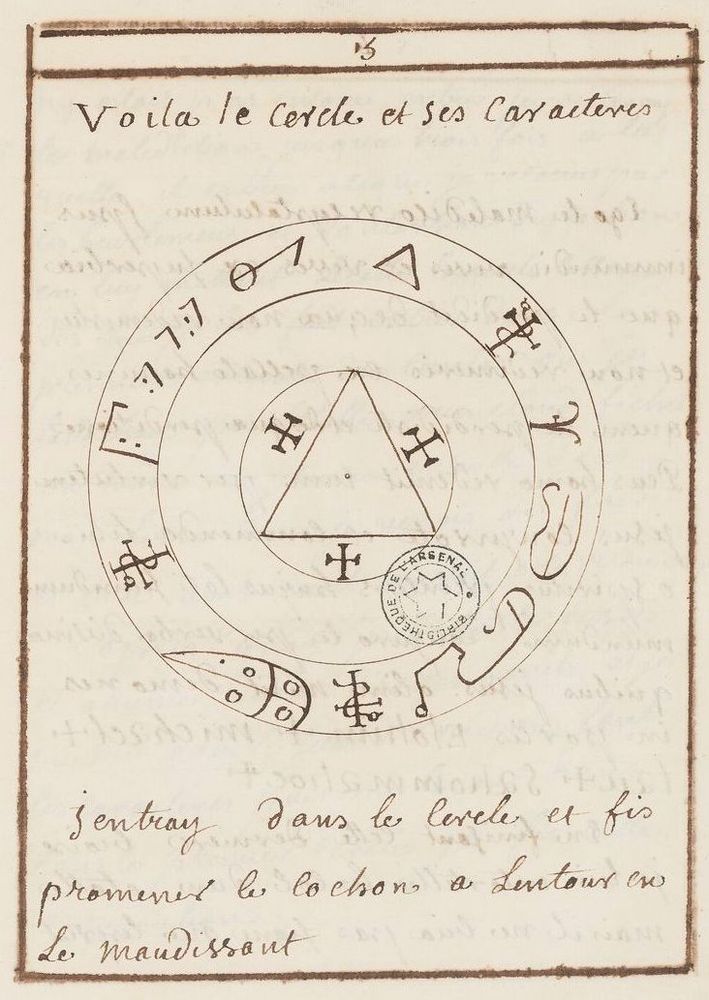 5
Voila le Cercle et ses Caracteres
BIBLIOTHEQUE DE L'ARSENAL
jentray dans le Cercle et fis
promener le Cochon a Lentour en
Le maudissant